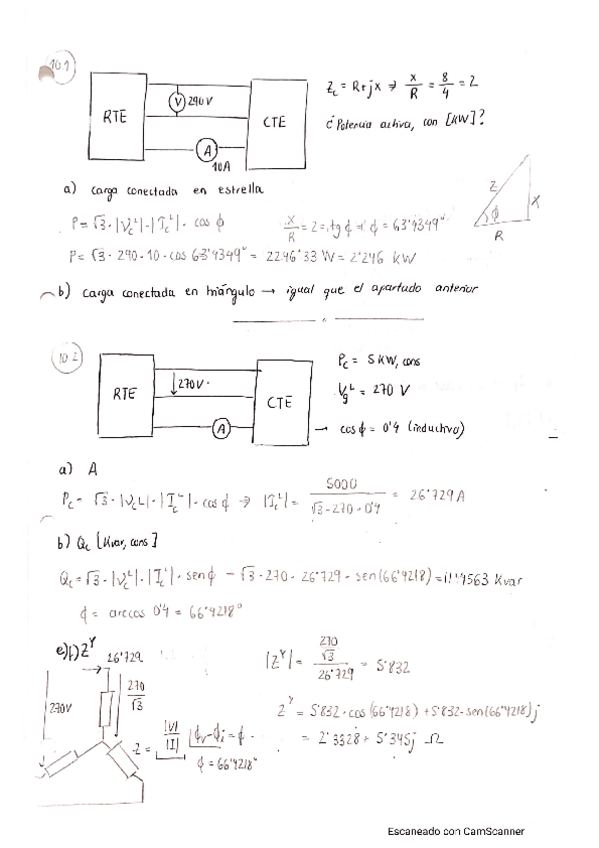 10.1
RTE
V 290 V
CTE
A
10A
Zc = R+jX ⇒ X/R = 8/4 = 2
¿Potencia activa, con [kW]?
a) Carga conectada en estrella
P = √3 · |Vc^L| · |Ic^L| · cos ϕ
X/R = 2 = tg ϕ ⇒ ϕ = 63'4349°
Z
X
ϕ
R
P = √3 · 290 · 10 · cos 63'4349° = 2246'33 W = 2'246 kW
b) Carga conectada en triángulo → igual que el apartado anterior
10.2
RTE
270V
CTE
A
Pc = 5 KW, cons
Vg^L = 270 V
→ cos ϕ = 0'4 (inductivo)
a) A
Pc = √3 · |Vc^L| · |Ic^L| · cos ϕ ⇒ |Ic^L| = 5000 / √3 · 270 · 0'4 = 26'729 A
b) Qc [Kvar, cons]
Qc = √3 · |Vc^L| · |Ic^L| · sen ϕ = √3 · 270 · 26'729 · sen(66'4218) = 11'4563 Kvar
ϕ = arccos 0'4 = 66'4218°
e)f) Z^Y
26'729
270V
270/√3
|Z^Y| = 270/√3 / 26'729 = 5'832
Z = |V|/|I| ϕv-ϕi = ϕ
ϕ = 66'4218°
Z^Y = 5'832 · cos (66'4218) + 5'832 · sen(66'4218)j
= 2'3328 + 5'345j Ω
Escaneado con CamScanner